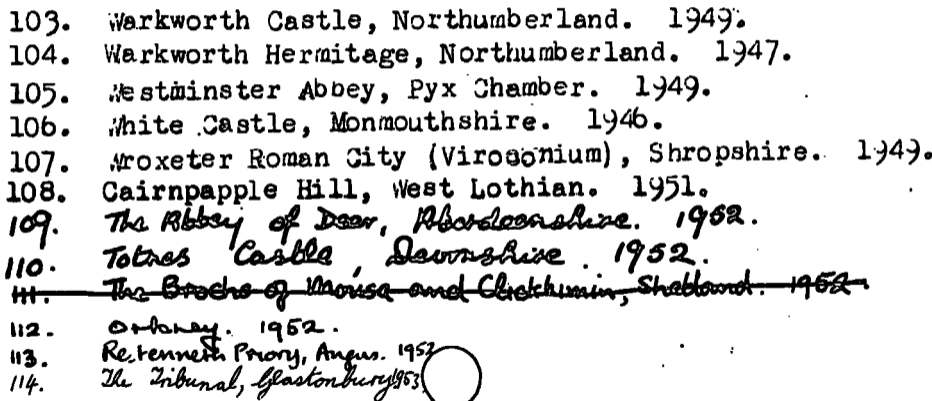 103. Warkworth Castle, Northumberland. 1949.
104. Warkworth Hermitage, Northumberland. 1947.
105. Westminster Abbey, Pyx Chamber. 1949.
106. White Castle, Monmouthshire. 1946.
107. Wroxeter Roman City (Viroconium), Shropshire. 1949.
108. Cairnpapple Hill, West Lothian. 1951.
109. The Abbey of Deer, Aberdeenshire. 1952.
110. Totnes Castle, Devonshire. 1952.
111. The Brochs of Mousa and Clickhimin, Shetland. 1952.
112. Orkney. 1952.
113. Restenneth Priory, Angus. 1952
114. The Tribunal, Glastonbury 1953